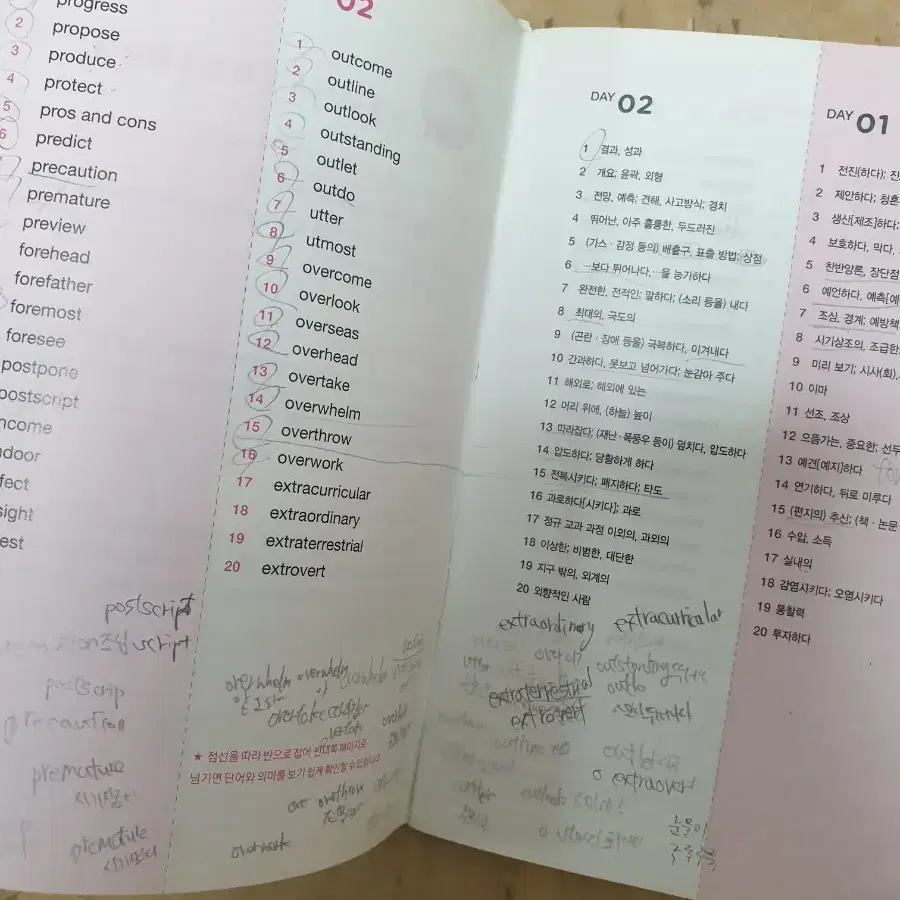 progress
2 propose
3 produce
4 protect
5 pros and cons
6 predict
precaution
premature
preview
forehead
forefather
foremost
foresee
postpone
postscript
ncome
ndoor
fect
sight
est
postscript
script
postscrip
precaution
premature
premature
02
1 outcome
2 outline
3 outlook
4 outstanding
5 outlet
6 outdo
7 utter
8 utmost
9 overcome
10 overlook
11 overseas
12 overhead
13 overtake
14 overwhelm
15 overthrow
16 overwork
17 extracurricular
18 extraordinary
19 extraterrestrial
20 extrovert
overwhelm overwhelm
overtake
★ 점선을 따라 반으로 접어 반대쪽 페이지로
넘기면 단어와 의미를 보기 쉽게 확인할 수 있습니다
overthrow
overwork
DAY 02
1 결과, 성과
2 개요; 윤곽, 외형
3 전망, 예측; 견해, 사고방식; 경치
4 뛰어난, 아주 훌륭한, 두드러진
5 (가스 · 감정 등의) 배출구, 표출 방법; 상점
6 …보다 뛰어나다, …을 능가하다
7 완전한, 전적인; 말하다; (소리 등을) 내다
8 최대의, 극도의
9 (곤란 · 장애 등을) 극복하다, 이겨내다
10 간과하다, 못보고 넘어가다; 눈감아 주다
11 해외로; 해외에 있는
12 머리 위에, (하늘) 높이
13 따라잡다; (재난 · 폭풍우 등이) 덮치다, 압도하다
14 압도하다; 당황하게 하다
15 전복시키다; 폐지하다; 타도
16 과로하다[시키다]; 과로
17 정규 교과 과정 이외의, 과외의
18 이상한; 비범한, 대단한
19 지구 밖의, 외계의
20 외향적인 사람
extraordinary extracurricular
outstanding
extraterrestrial outdo
extrovert
o extraovert
utter
DAY 01
1 전진(하다); 진
2 제안하다; 청혼
3 생산[제조]하다;
4 보호하다, 막다,
5 찬반양론, 장단점
6 예언하다, 예측[예
7 조심, 경계; 예방책
8 시기상조의, 조급한;
9 미리 보기; 시사(회),
10 이마
11 선조, 조상
12 으뜸가는, 중요한; 선두
13 예견[예지]하다
14 연기하다, 뒤로 미루다
15 (편지의) 추신; (책 · 논문
16 수입, 소득
17 실내의
18 감염시키다; 오염시키다
19 통찰력
20 투자하다